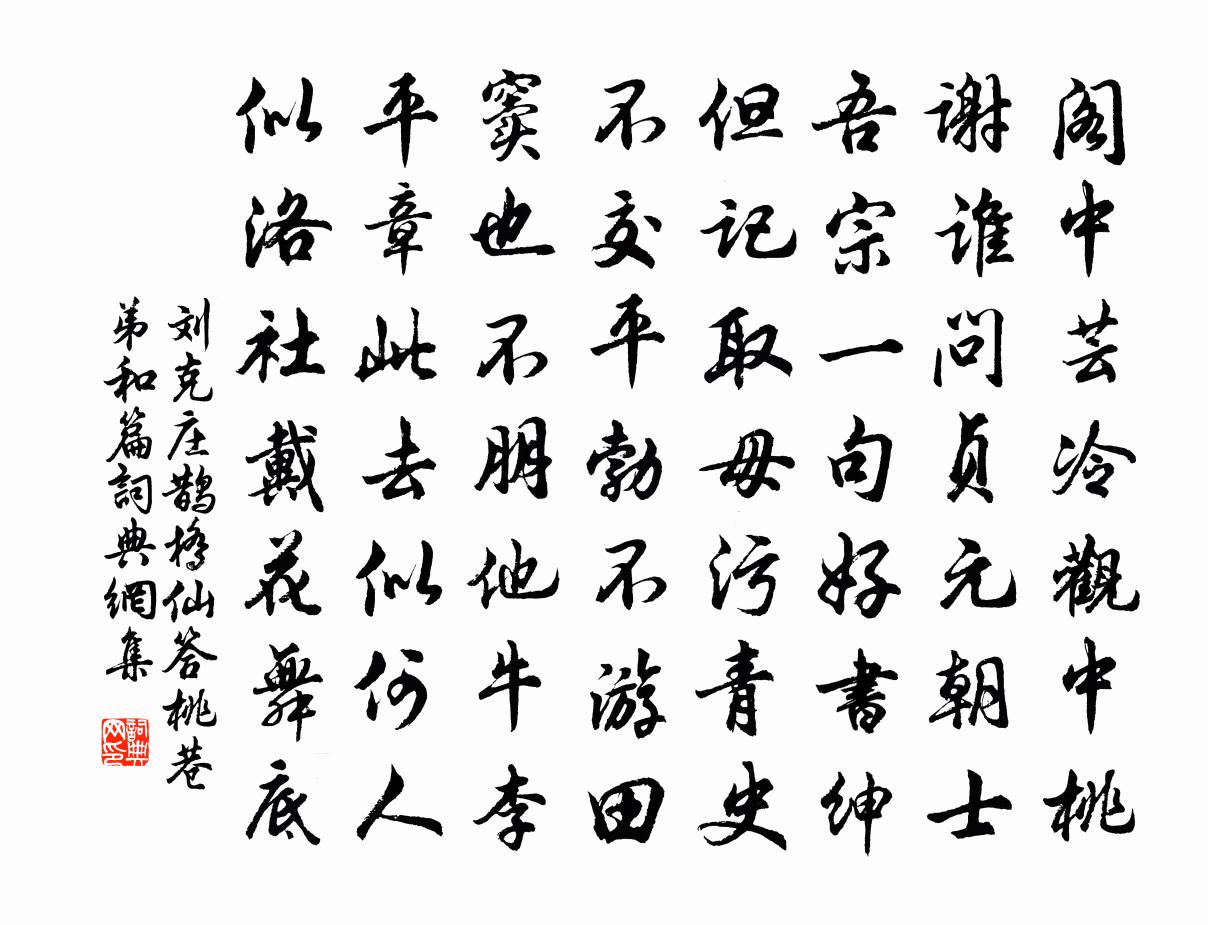 阁中芸冷觀中桃
谢谁问贞元朝士
吾宗一句好書绅
但记取毋污青史
不交平勃不游田
窦也不朋他牛李
平章此去似何人
似洛社戴花舞底
刘克庄鹊橋仙答桃巷
弟和篇詞典網集
詞典网印